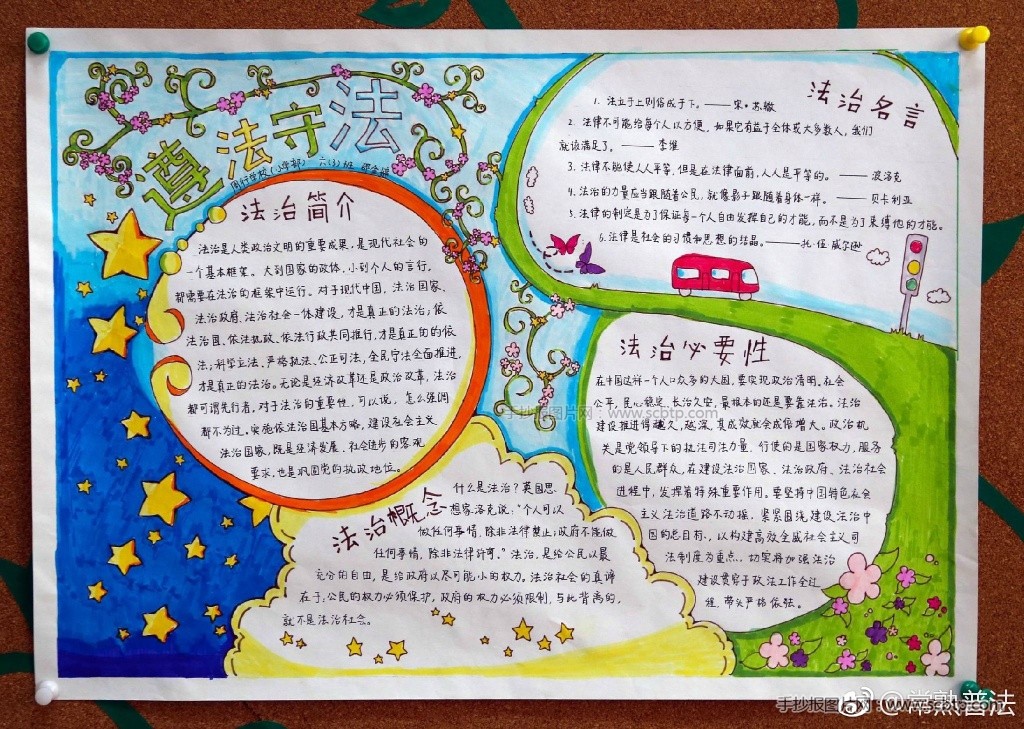 遵法守法
周行学校(小学部) 六(3)班
法治简介
法治是人类政治文明的重要成果,是现代社会的
一个基本框架。大到国家的政体,小到个人的言行,
都需要在法治的框架中运行。对于现代中国,法治国家、
法治政府、法治社会一体建设,才是真正的法治;依
法治国、依法执政、依法行政共同推行,才是真正的的依
法;科学立法、严格执法、公正司法,全民守法全面推进,
才是真正的法治。无论是经济改革还是政治改革,法治
都可谓先行者,对于法治的重要性,可以说,怎么强调
都不为过。实施依法治国基本方略,建设社会主义
法治国家,既是经济发展、社会进步的客观
要求,也是巩固党的执政地位。
法治概念
什么是法治?英国思
想家洛克说:"个人可以
做任何事情,除非法律禁止;政府不能做
任何事情,除非法律许可。"法治,是给公民以最
充分的自由,是给政府以尽可能小的权力。法治社会的真谛
在于:公民的权力必须保护,政府的权力必须限制,与此背离的,
就不是法治社会。
法治名言
1. 法立于上则俗成于下。——宋·苏辙
2. 法律不可能给每个人以方便,如果它有益于全体或大多数人,我们
就该满足了。——李维
3. 法律不能使人人平等,但是在法律面前,人人是平等的。——波洛克
4. 法治的力量应当跟随着公民,就像影子跟随着身体一样。——贝卡利亚
5. 法律的制定是为了保证每一个人自由发挥自己的才能,而不是为了束缚他的才能。
6. 法律是社会的习惯和思想的结晶。——托·伍·威尔逊
法治必要性
在中国这样一个人口众多的大国,要实现政治清明、社会
公平、民心稳定、长治久安,最根本的还是要靠法治。法治
建设推进得越久,越深,其成效就会成倍增大。政治机
关是党领导下的执法司法力量,行使的是国家权力,服务
的是人民群众,在建设法治国家、法治政府、法治社会
进程中,发挥着特殊重要作用。要坚持中国特色社会
主义法治道路不动摇,紧紧围绕建设法治中
国的总目标,以构建高效全威社会主义司
法制度为重点,切实将加强法治
建设贯穿于政法工作全过
程,带头严格依法。
手抄报图片网:www.scbtp.com
手抄报图片网:www.scbtp.com
@常熟普法